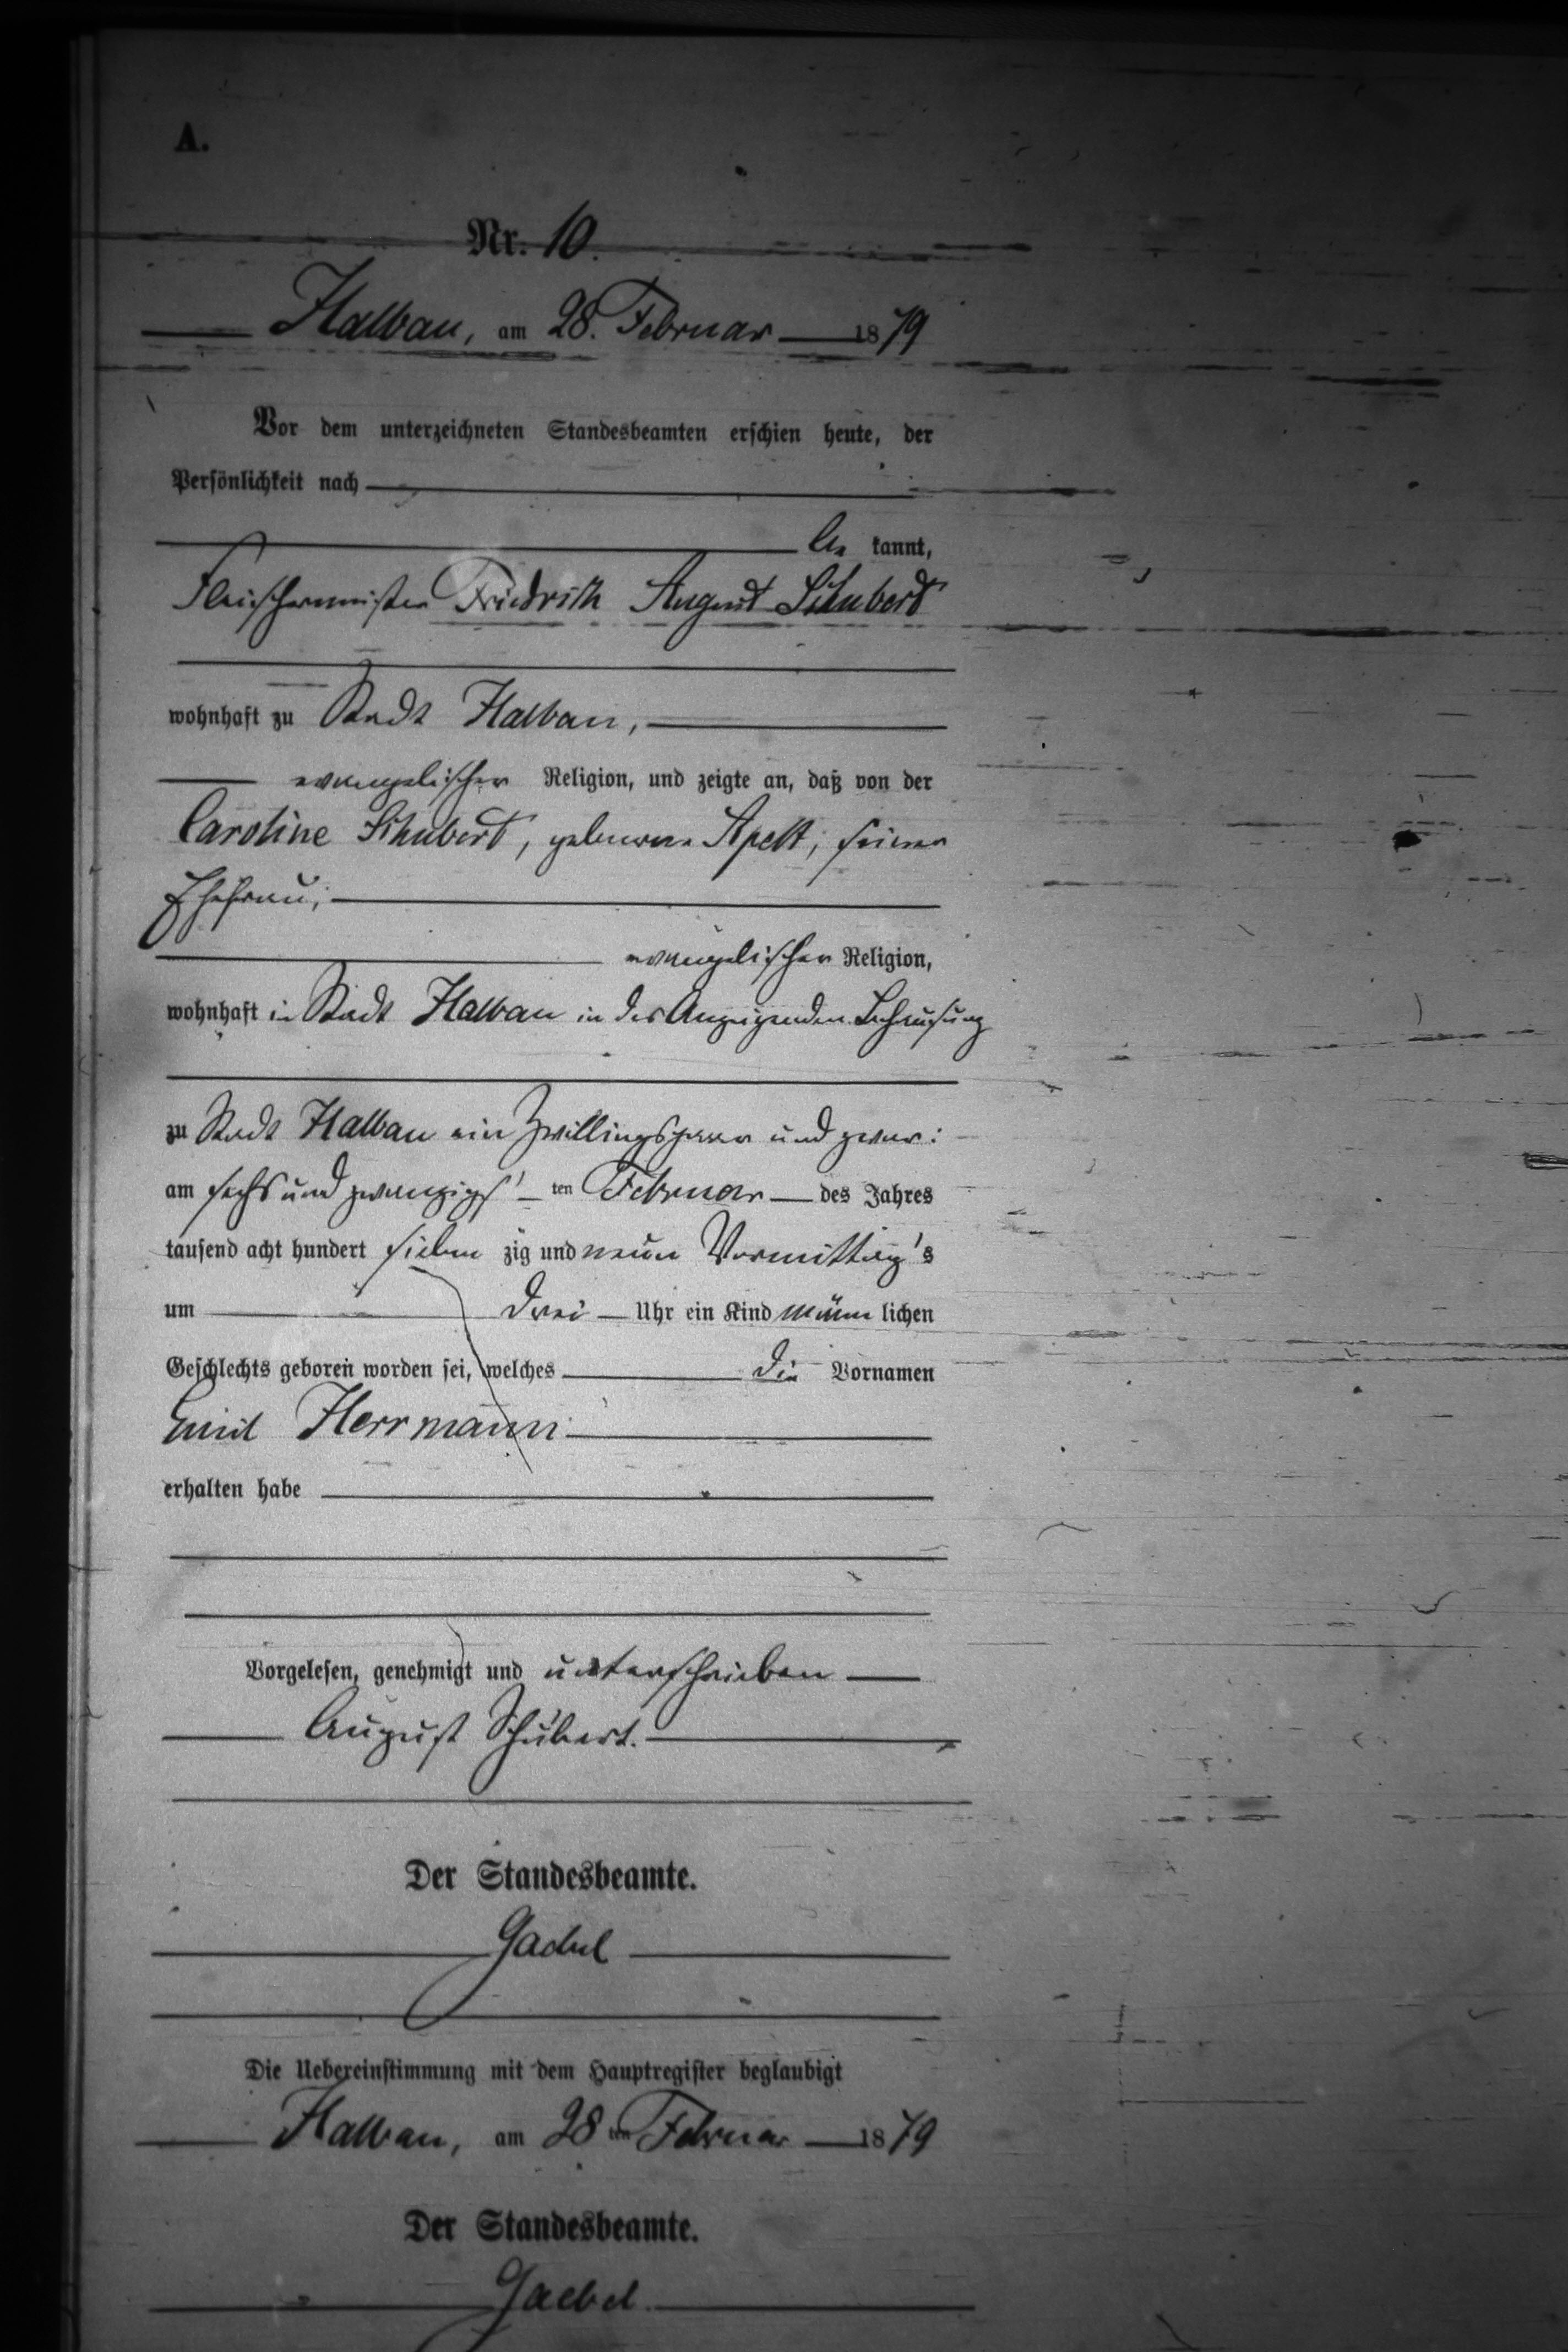 A.
Nr. 10.
Halbau, am 28. Februar 1879
Vor dem unterzeichneten Standesbeamten erschien heute, der
Persönlichkeit nach
be kannt,
Fleischermeister Friedrich August Schubert
wohnhaft zu Stadt Halbau,
evangelischer Religion, und zeigte an, daß von der
Caroline Schubert, geborene Apelt, seiner
Ehefrau,
evangelischer Religion,
wohnhaft in Stadt Halbau in des Anzeigenden Behausung
zu Stadt Halbau ein Zwillingspaar und zwar:
am sechs und zwanzigs ten Februar des Jahres
tausend acht hundert sieben zig und neun Vormittag's
um drei Uhr ein Kind männ lichen
Geschlechts geboren worden sei, welches die Vornamen
Emil Herrmann
erhalten habe
Vorgelesen, genehmigt und unterschrieben
August Schubert.
Der Standesbeamte.
Gaebel
Die Uebereinstimmung mit dem Hauptregister beglaubigt
Halbau, am 28 ten Februar 1879
Der Standesbeamte.
Gaebel